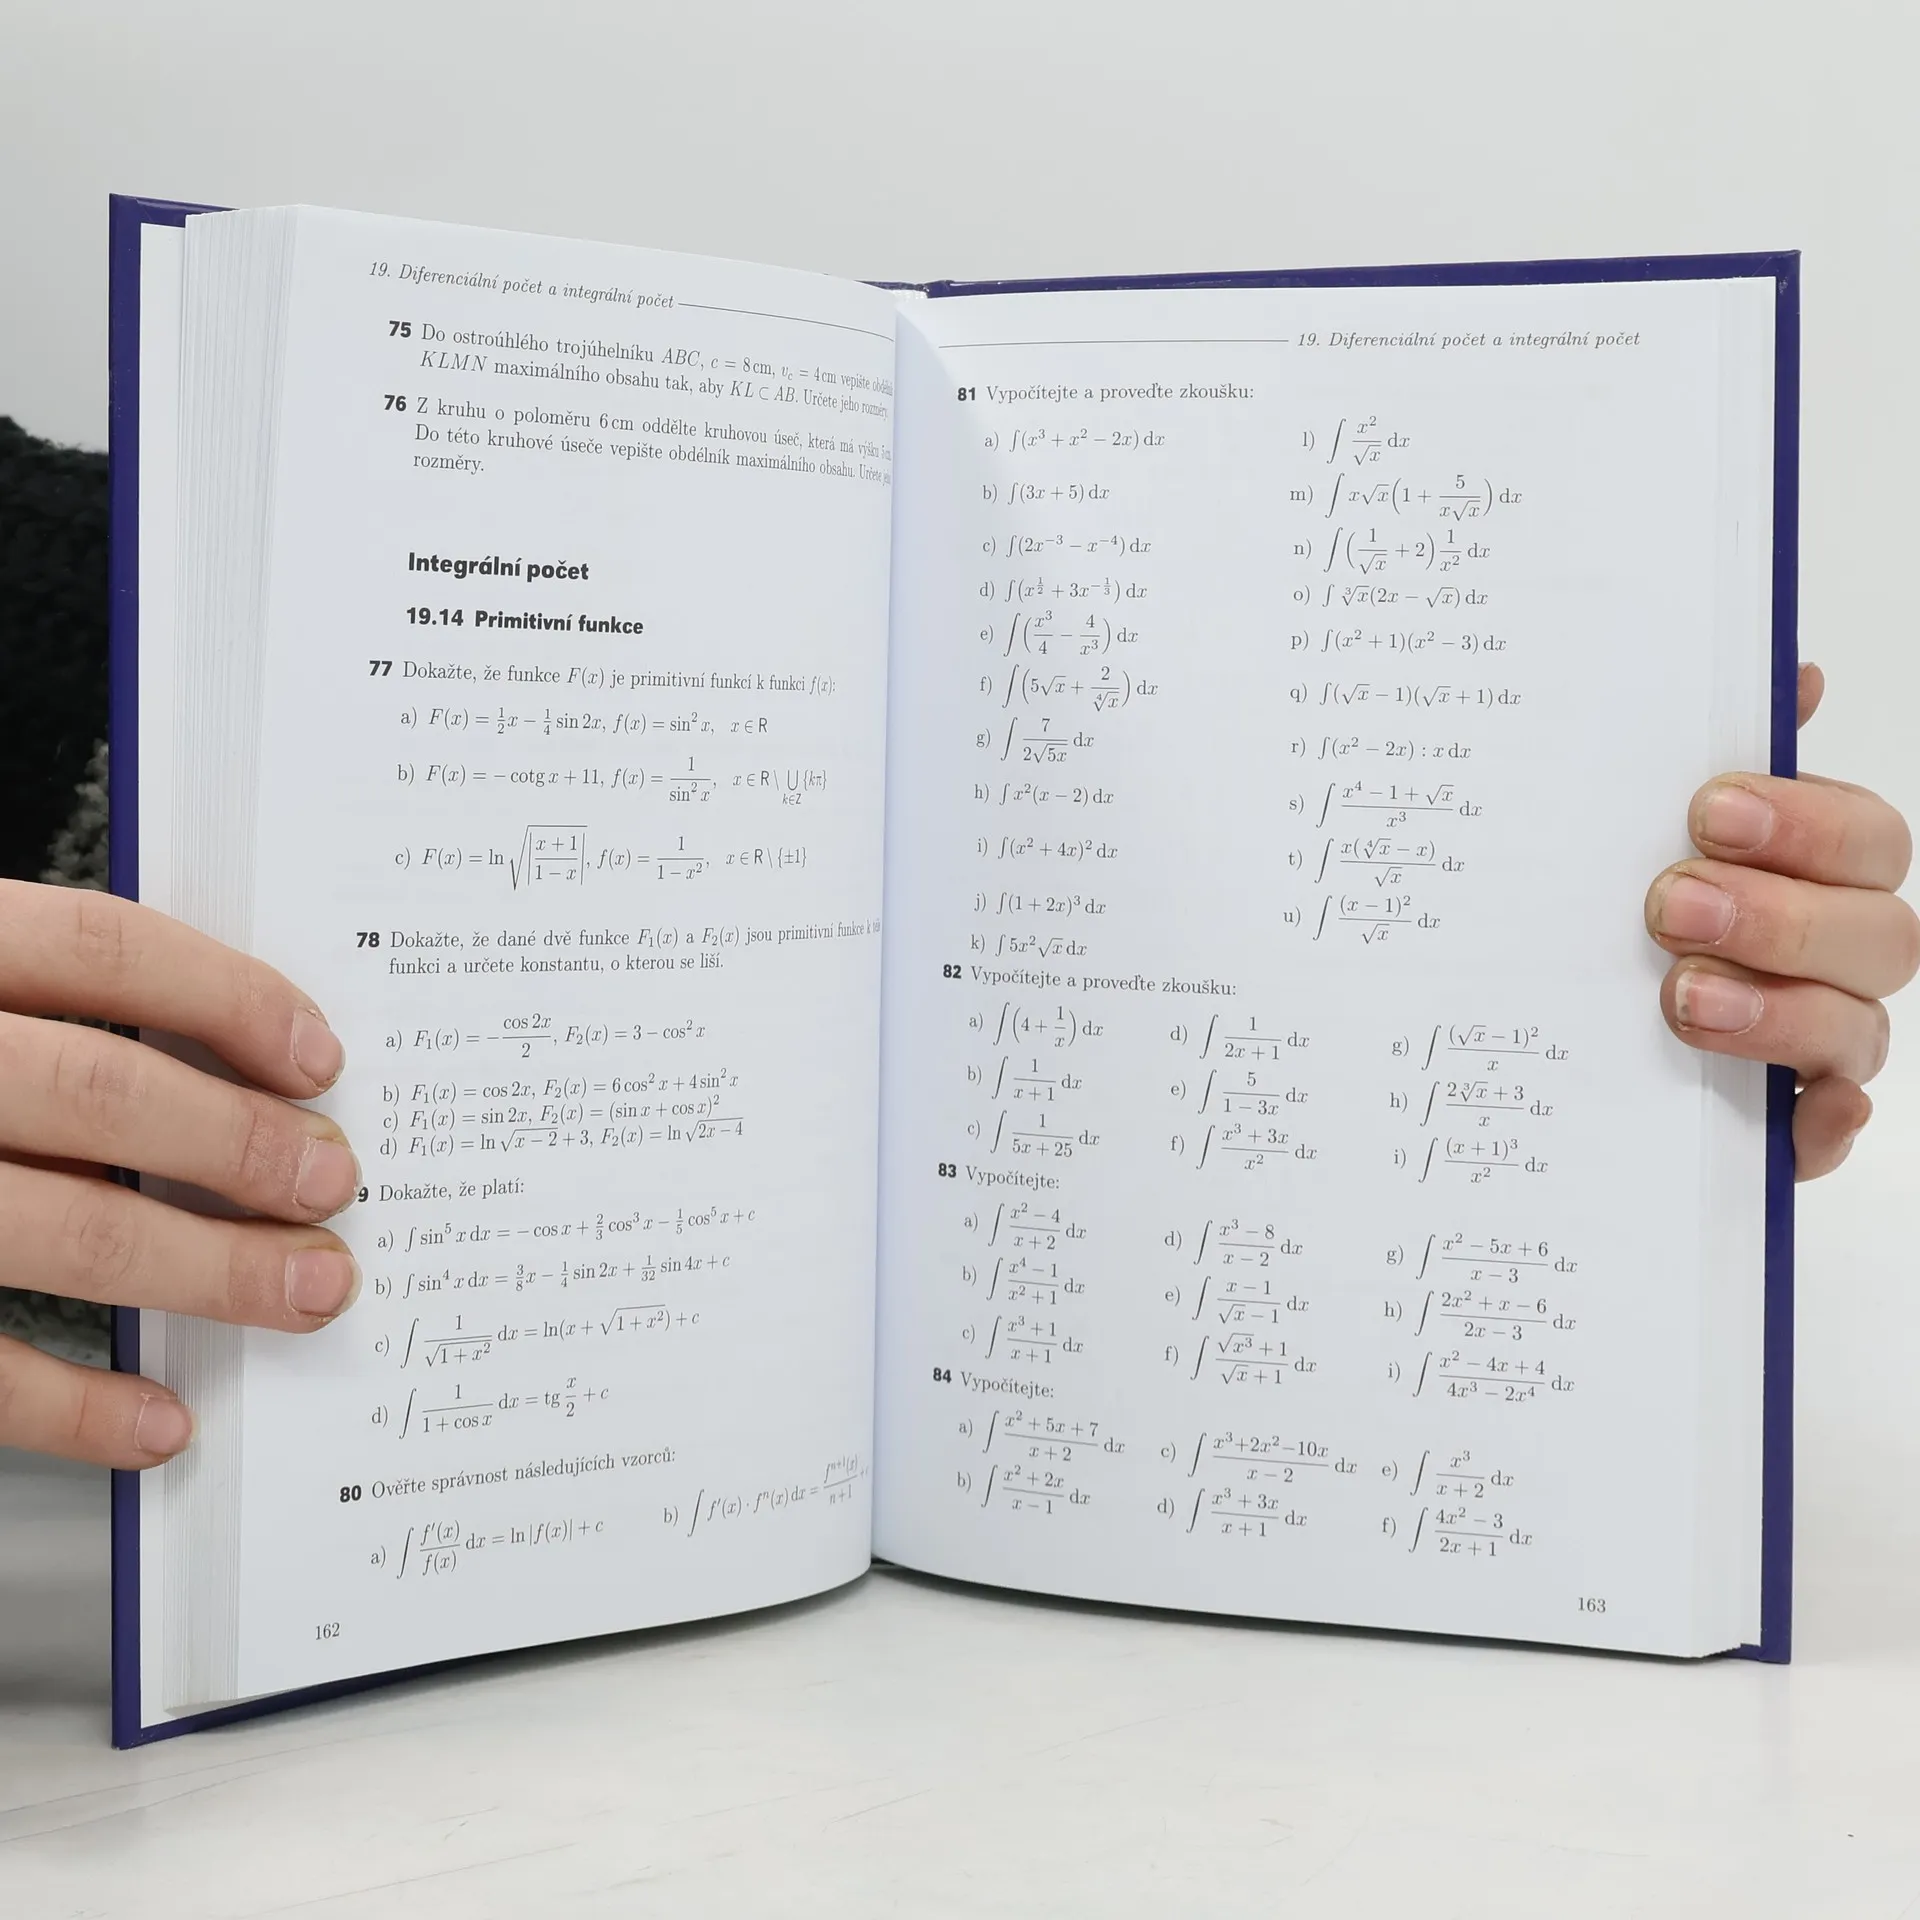 19. Diferenciální počet a integrální počet
75 Do ostroúhlého trojúhelníku ABC, c = 8 cm, v_c = 4 cm vepište
KLMN maximálního obsahu tak, aby KL ⊂ AB. Určete jeho rozměry.
76 Z kruhu o poloměru 6 cm oddělte kruhovou úseč, která má výšku
Do této kruhové úseče vepište obdélník maximálního obsahu. Určete
rozměry.
Integrální počet
19.14 Primitivní funkce
77 Dokažte, že funkce F(x) je primitivní funkcí k funkci f(x):
a) F(x) = 1/2 x − 1/4 sin 2x, f(x) = sin² x, x ∈ R
b) F(x) = − cotg x + 11, f(x) = 1/(sin² x), x ∈ R \ ⋃_{k∈Z} {kπ}
c) F(x) = ln √|(x + 1)/(1 − x)|, f(x) = 1/(1 − x²), x ∈ R \ {±1}
78 Dokažte, že dané dvě funkce F₁(x) a F₂(x) jsou primitivní funkce k
funkci a určete konstantu, o kterou se liší.
a) F₁(x) = −(cos 2x)/2, F₂(x) = 3 − cos² x
b) F₁(x) = cos 2x, F₂(x) = 6 cos² x + 4 sin² x
c) F₁(x) = sin 2x, F₂(x) = (sin x + cos x)²
d) F₁(x) = ln √(x − 2) + 3, F₂(x) = ln √(2x − 4)
9 Dokažte, že platí:
a) ∫ sin⁵ x dx = − cos x + 2/3 cos³ x − 1/5 cos⁵ x + c
b) ∫ sin⁴ x dx = 3/8 x − 1/4 sin 2x + 1/32 sin 4x + c
c) ∫ 1/√(1 + x²) dx = ln(x + √(1 + x²)) + c
d) ∫ 1/(1 + cos x) dx = tg x/2 + c
80 Ověřte správnost následujících vzorců:
a) ∫ f′(x)/f(x) dx = ln |f(x)| + c
b) ∫ f′(x) · fⁿ(x) dx = fⁿ⁺¹(x)/(n + 1) +
162
19. Diferenciální počet a integrální počet
81 Vypočítejte a proveďte zkoušku:
a) ∫(x³ + x² − 2x) dx
b) ∫(3x + 5) dx
c) ∫(2x⁻³ − x⁻⁴) dx
d) ∫(x^(1/2) + 3x^(−1/3)) dx
e) ∫(x³/4 − 4/x³) dx
f) ∫(5√x + 2/⁴√x) dx
g) ∫ 7/(2√(5x)) dx
h) ∫ x²(x − 2) dx
i) ∫(x² + 4x)² dx
j) ∫(1 + 2x)³ dx
k) ∫ 5x²√x dx
l) ∫ x²/√x dx
m) ∫ x√x(1 + 5/(x√x)) dx
n) ∫(1/√x + 2) 1/x² dx
o) ∫ ³√x(2x − √x) dx
p) ∫(x² + 1)(x² − 3) dx
q) ∫(√x − 1)(√x + 1) dx
r) ∫(x² − 2x) : x dx
s) ∫ (x⁴ − 1 + √x)/x³ dx
t) ∫ x(⁴√x − x)/√x dx
u) ∫ (x − 1)²/√x dx
82 Vypočítejte a proveďte zkoušku:
a) ∫(4 + 1/x) dx
b) ∫ 1/(x + 1) dx
c) ∫ 1/(5x + 25) dx
d) ∫ 1/(2x + 1) dx
e) ∫ 5/(1 − 3x) dx
f) ∫ (x³ + 3x)/x² dx
g) ∫ (√x − 1)²/x dx
h) ∫ (2³√x + 3)/x dx
i) ∫ (x + 1)³/x² dx
83 Vypočítejte:
a) ∫ (x² − 4)/(x + 2) dx
b) ∫ (x⁴ − 1)/(x² + 1) dx
c) ∫ (x³ + 1)/(x + 1) dx
d) ∫ (x³ − 8)/(x − 2) dx
e) ∫ (x − 1)/(√x − 1) dx
f) ∫ (√x³ + 1)/(√x + 1) dx
g) ∫ (x² − 5x + 6)/(x − 3) dx
h) ∫ (2x² + x − 6)/(2x − 3) dx
i) ∫ (x² − 4x + 4)/(4x³ − 2x⁴) dx
84 Vypočítejte:
a) ∫ (x² + 5x + 7)/(x + 2) dx
b) ∫ (x² + 2x)/(x − 1) dx
c) ∫ (x³+2x²−10x)/(x − 2) dx
d) ∫ (x³ + 3x)/(x + 1) dx
e) ∫ x³/(x + 2) dx
f) ∫ (4x² − 3)/(2x + 1) dx
163